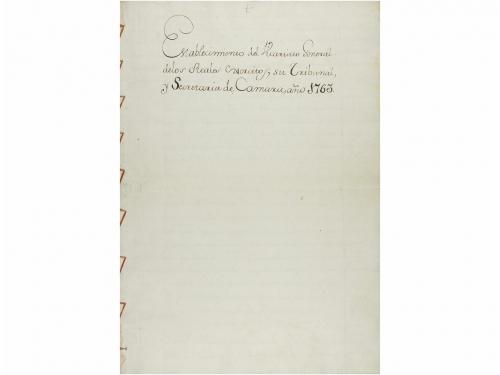 Establecimiento del Vicariato General
delos Reales Exercitos, su Tribunal,
y Secretaria de Camara, año 1763.